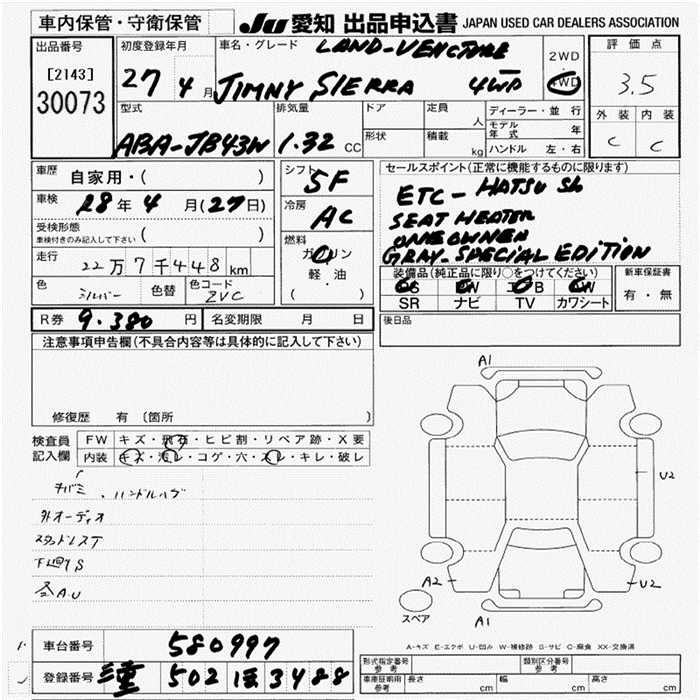 車内保管・守衛保管
JU 愛知 出品申込書 JAPAN USED CAR DEALERS ASSOCIATION
出品番号
[2143]
30073
初度登録年月
27 4 月
車名・グレード
LAND-VENCTURE
JIMNY SIERRA 4WD
2WD
4WD
評価点
3.5
外装 内装
C C
型式
ABA-JB43W
排気量
1.32 CC
ドア
形状
定員 人
積載 kg
ディーラー・並行
モデル年式 年
ハンドル 左・右
車歴
自家用・( )
車検
28年4月(27日)
受検形態
車検付きのみ記入して下さい ( )
走行
22万7千448km
色
シルバー
色替
色コード
ZVC
シフト
5F
冷房
AC
燃料
ガソリン
軽・油
( )
セールスポイント(正常に機能するものに限ります)
ETC-
SEAT HEATER
ONE OWNER
GRAY-SPECIAL EDITION
装備品(純正品に限り○をつけてください)
PS PW エアB AW
SR ナビ TV カワシート
新車保証書
有・無
R券 9.380 円
名変期限 月 日
後日品
注意事項申告欄(不具合内容等は具体的に記入して下さい)
修復歴 有 〔箇所 〕
検査員記入欄
FW キズ・飛石・ヒビ割・リペア跡・X要
内装 キズ・汚レ・コゲ・穴・スレ・キレ・破レ
ハンドルハゲ
外オーディオ
A1
U2
A2
U2
A1
スペア
A-キズ E-エクボ U-凹み W-補修跡 S-サビ C-腐食 XX-交換済
車台番号 580997
登録番号 502 3488
型式指定番号 参考
類別区分番号 参考
車庫証明用 参考 長さ cm 幅 cm 高さ cm